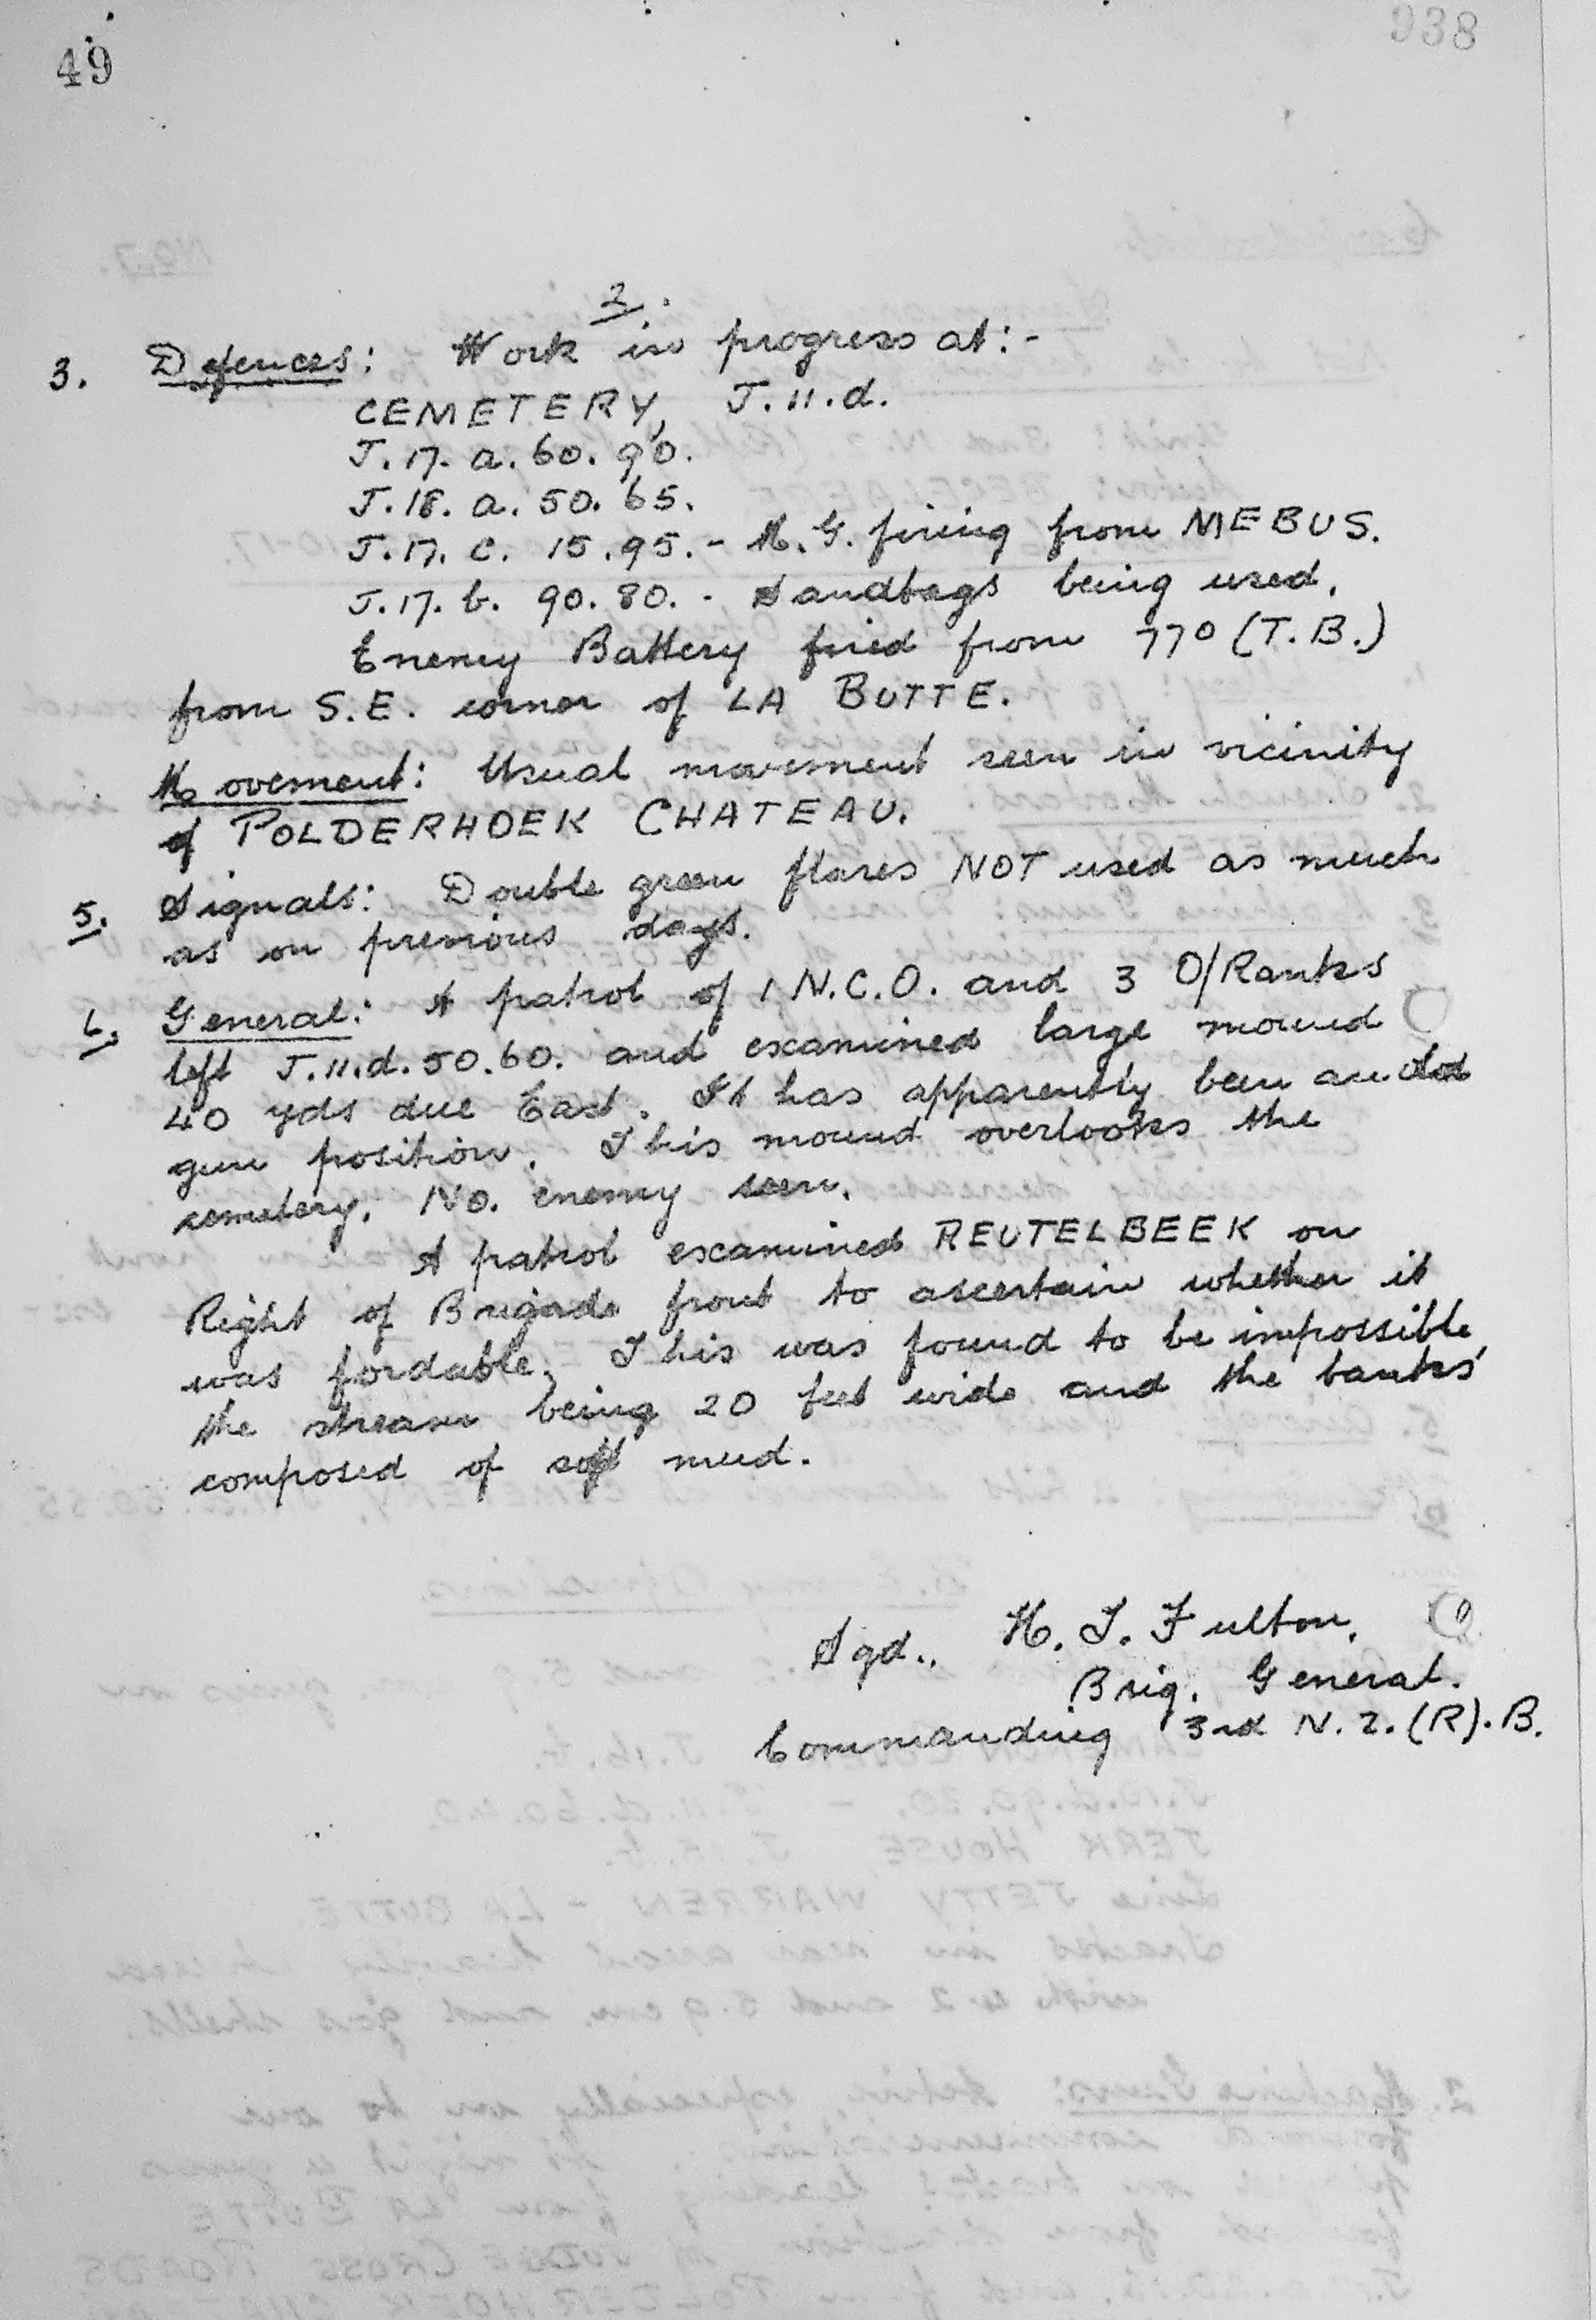 49
938
2.
3. Defences: Work in progress at:-
CEMETERY, J.11.d.
J.17.a.60.90.
J.18.a.50.65.
J.17.c.15.95.- M.G. firing from MEBUS.
J.17.b.90.80.- Sandbags being used.
Enemy Battery fired from 77° (T.B.)
from S.E. corner of LA BUTTE.
Movement: Usual movement seen in vicinity
of POLDERHOEK CHATEAU.
5. Signals: Double green flares NOT used as much
as on previous days.
6. General: A patrol of 1 N.C.O. and 3 O/Ranks
left J.11.d.50.60. and examined large mound
40 yds due East. It has apparently been an old
gun position. This mound overlooks the
cemetery. No. enemy seen.
A patrol examined REUTELBEEK on
Right of Brigade front to ascertain whether it
was fordable. This was found to be impossible,
the stream being 20 feet wide and the banks
composed of soft mud.
Sgd., H. T. Fulton.
Brig. General.
Commanding 3rd N.Z.(R).B.